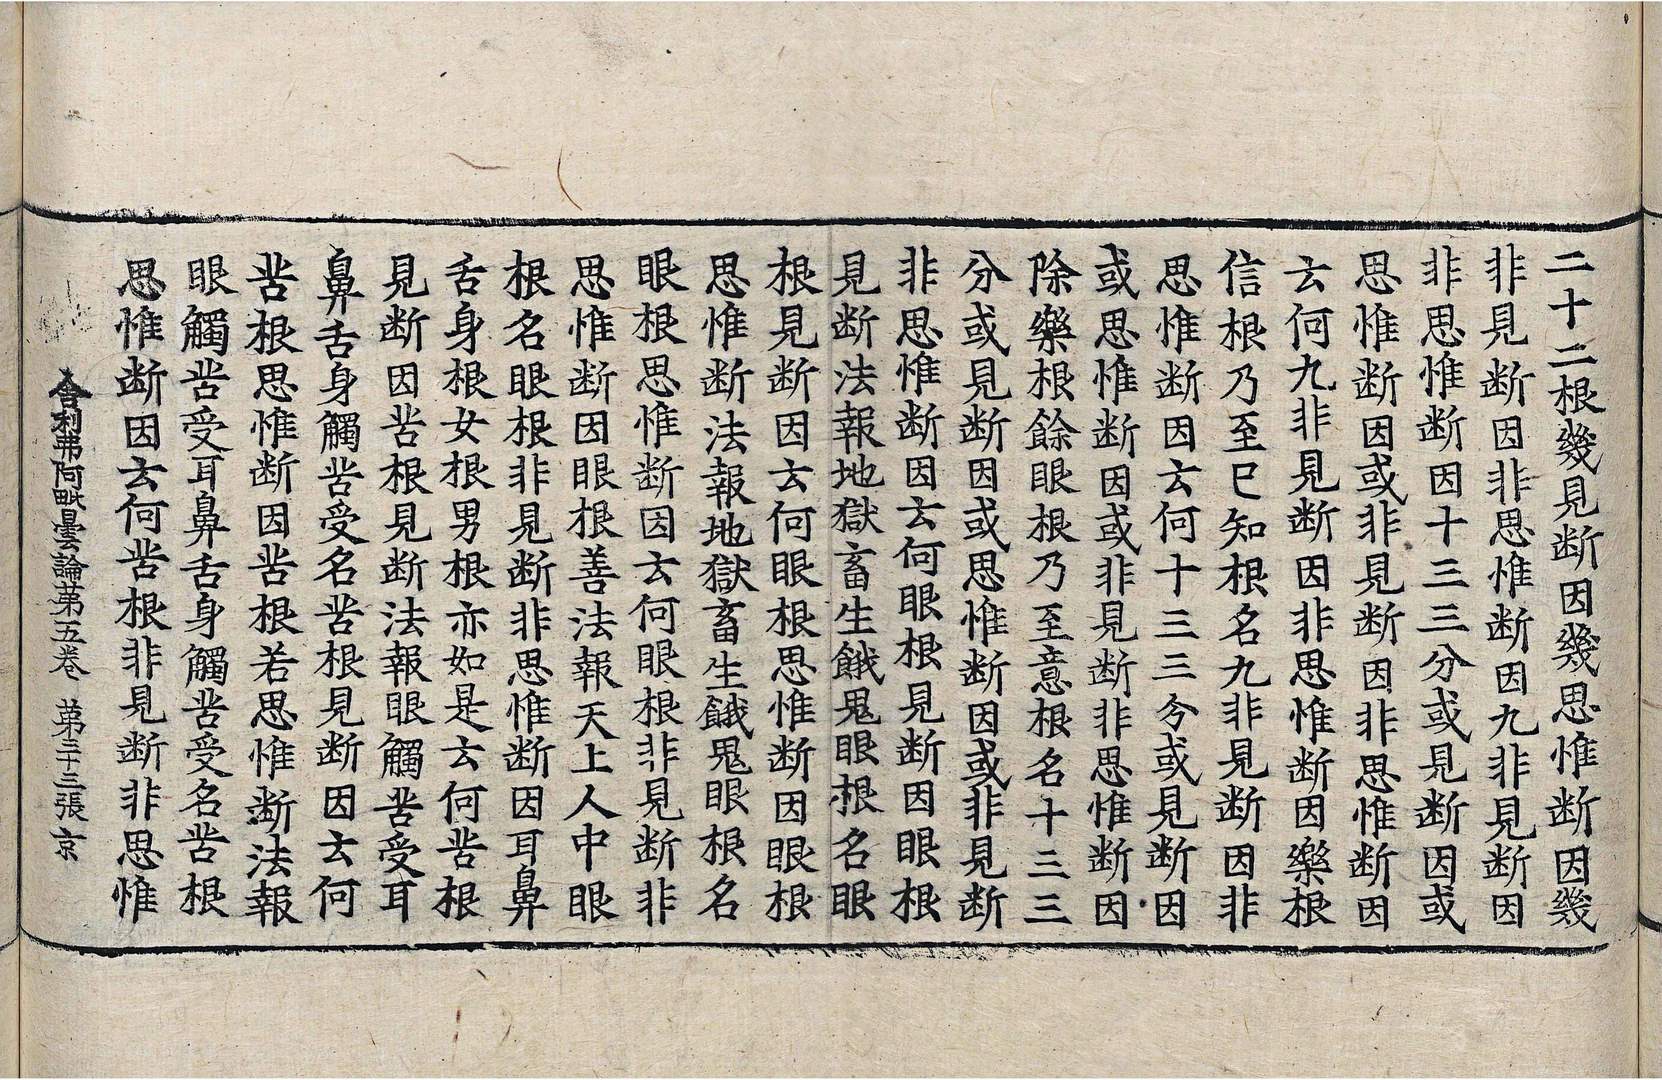 二十二根幾見断因幾思惟断因幾
非見断因非思惟断因九非見断因
非思惟断因十三三分或見断因或
思惟断因或非見断因非思惟断因
云何九非見断因非思惟断因樂根
信根乃至已知根名九非見断因非
思惟断因云何十三三分或見断因
或思惟断因或非見断非思惟断因
除樂根餘眼根乃至意根名十三三
分或見断因或思惟断因或非見断
非思惟断因云何眼根見断因眼根
見断法報地獄畜生餓鬼眼根名眼
根見断因云何眼根思惟断因眼根
思惟断法報地獄畜生餓鬼眼根名
眼根思惟断因云何眼根非見断非
思惟断因眼根善法報天上人中眼
根名眼根非見断非思惟断因耳鼻
舌身根女根男根亦如是云何苦根
見断因苦根見断法報眼觸苦受耳
鼻舌身觸苦受名苦根見断因云何
苦根思惟断因苦根若思惟断法報
眼觸苦受耳鼻舌身觸苦受名苦根
思惟断因云何苦根非見断非思惟
舍利弗阿毗曇論第五卷 第三十三張 京